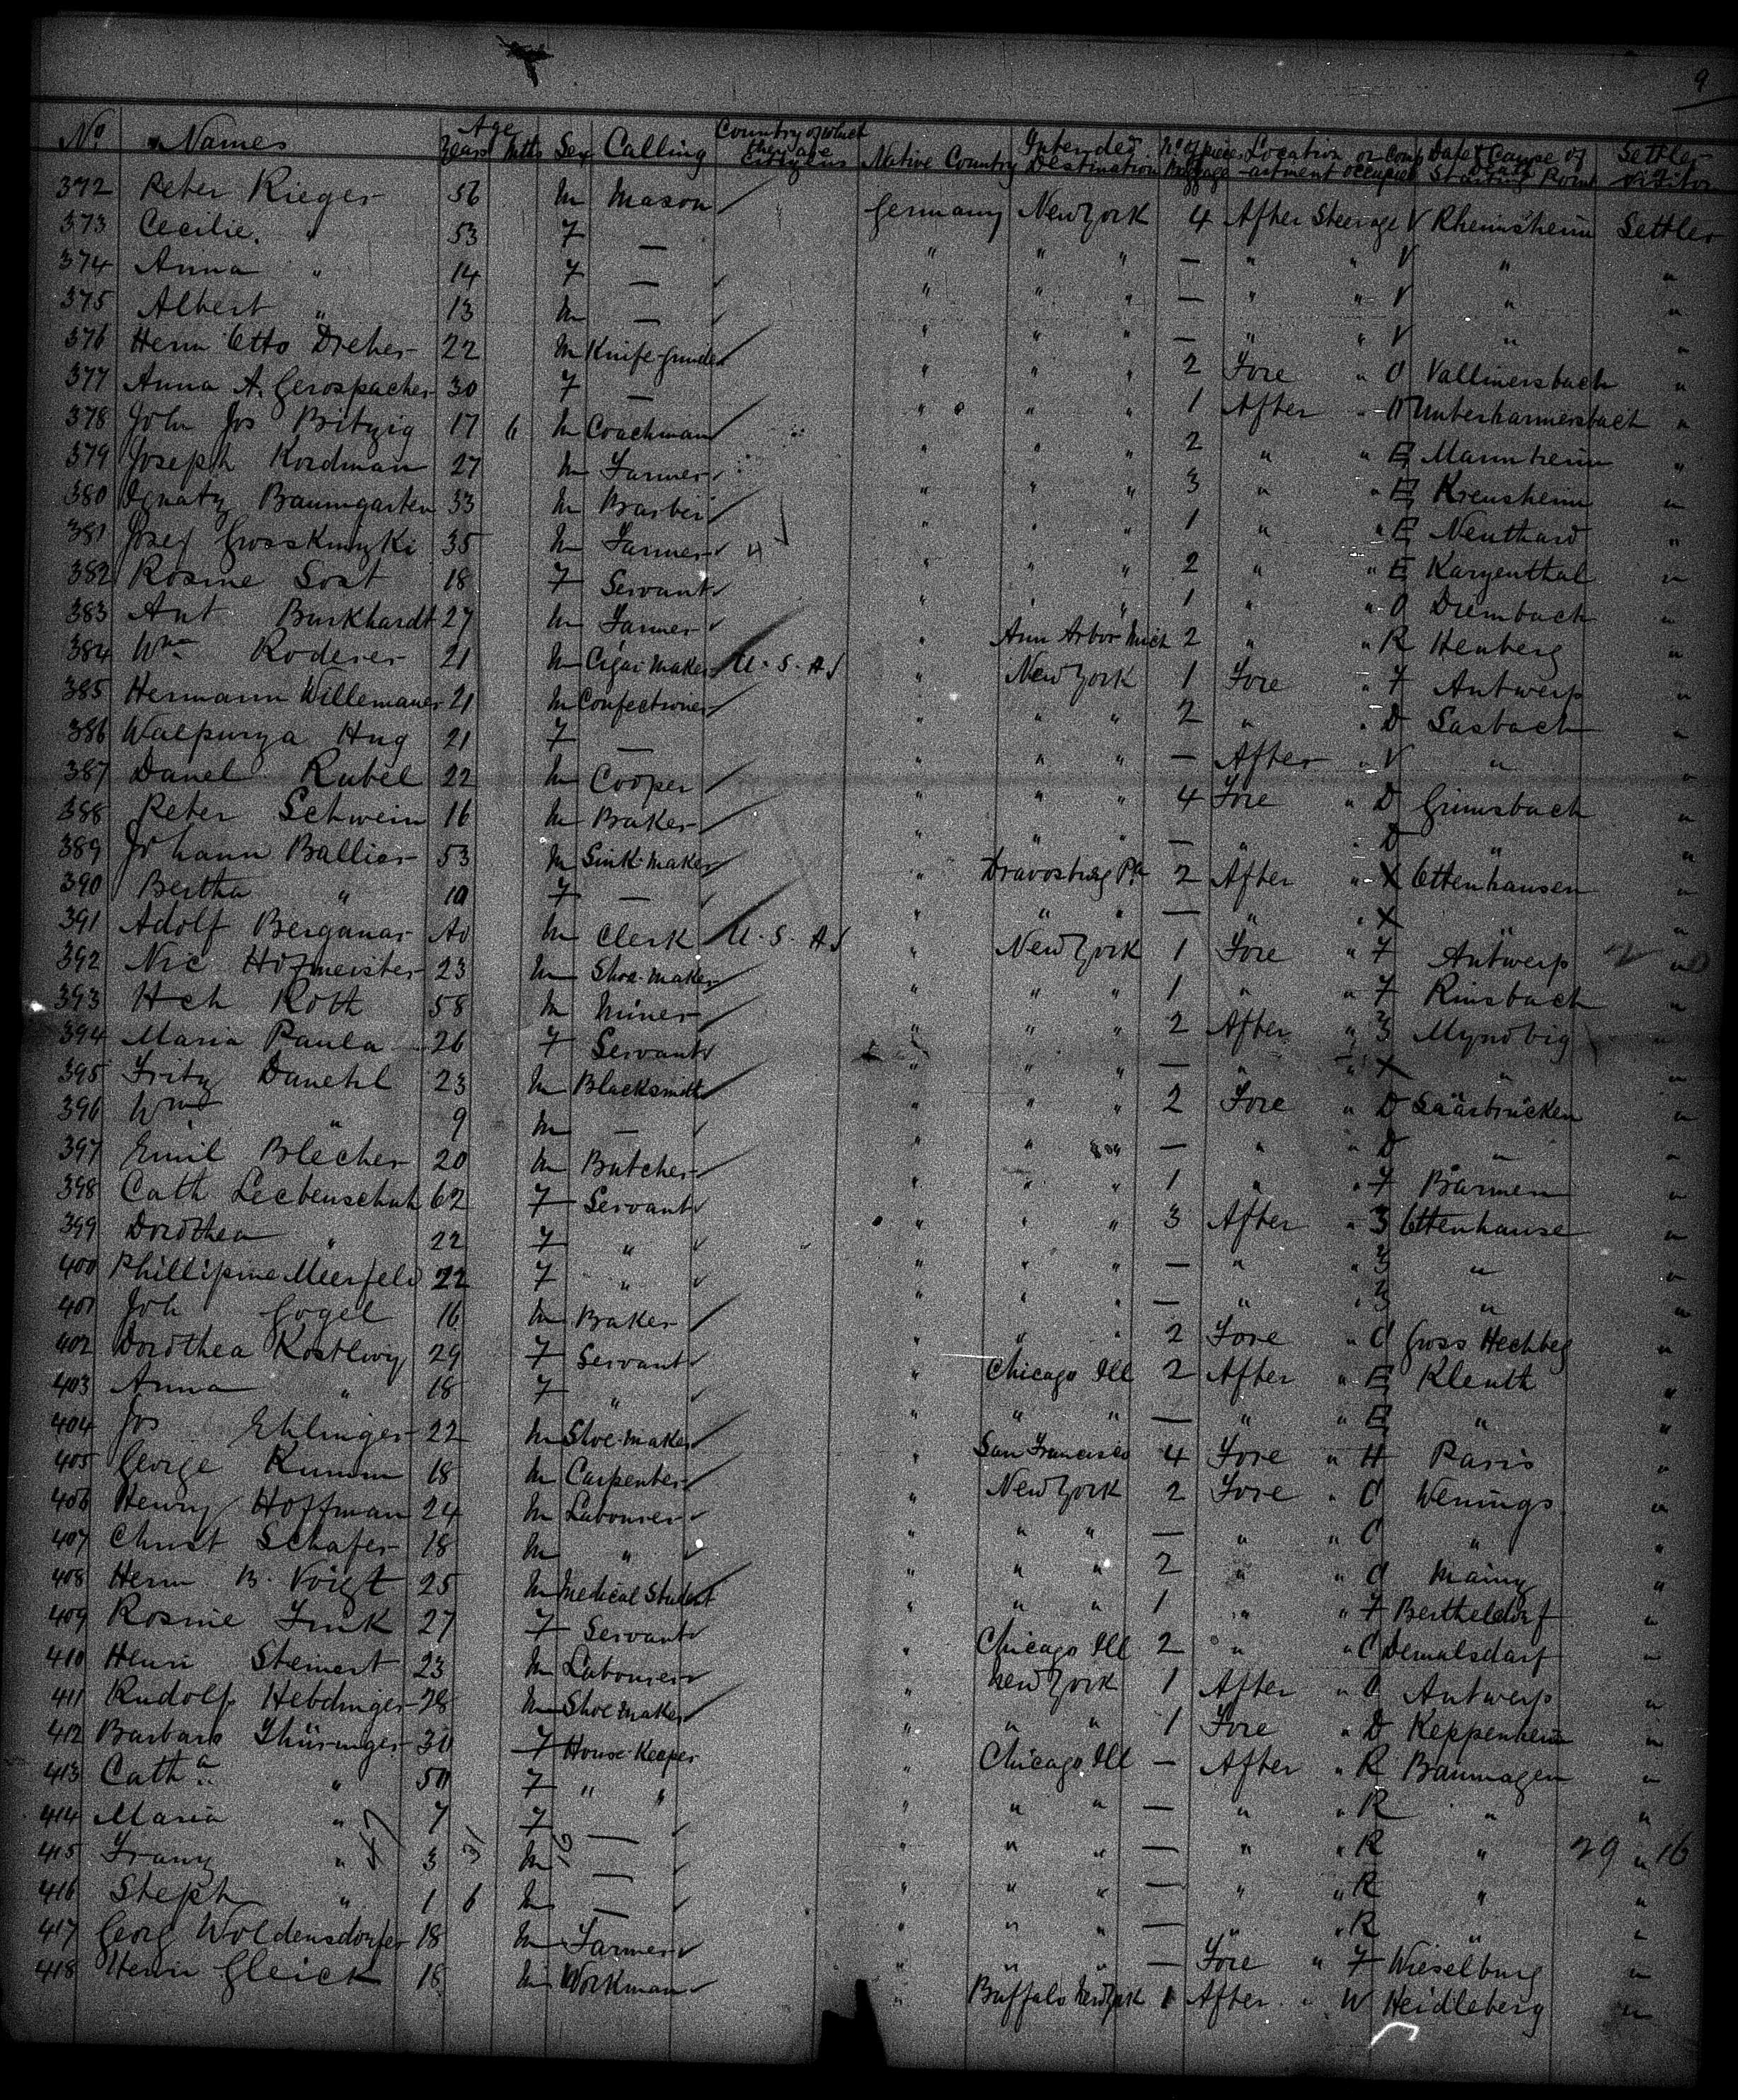 9
No. Names Age Years Mths Sex Calling Country of which they are Citizens Native Country Intended Destination No. of pieces Baggage Location or Compartment occupied Date & Cause of Death Starting Point Settler Visitor
372 Peter Rieger 56 M Mason Germany New York 4 After Steerage V Rheinsheim Settler
373 Cecilie " 53 F — " " " — " " V " "
374 Anna " 14 F — " " " — " " V " "
375 Albert " 13 M — " " " — " " V " "
376 Herm Otto Dreher 22 M Knife-grinder " " " 2 Fore " O Vallmersbach "
377 Anna A. Gerospacher 30 F — " " " 1 After " Unterharmersbach "
378 Joh Jos Britzig 17 6 M Coachman " " " 2 " " E Mannheim "
379 Joseph Kordman 27 M Farmer " " " 3 " " E Krensheim "
380 Ignatz Baumgarten 33 M Barber " " " 1 " " E Neuthard "
381 Josef Grosskinzki 35 M Farmer " " " 2 " " E Karzenthal "
382 Rosine Sost 18 F Servant " " " 1 " " O Diembach "
383 Ant Burkhardt 27 M Farmer " Ann Arbor Mich 2 " " R Henberg "
384 Wm Roderer 21 M Cigar Maker U.S.A " New York 1 Fore " F Antwerp "
385 Hermann Willemauer 21 M Confectioner " " " 2 " " D Sasbach "
386 Walpurga Hug 21 F — " " " — After " V " "
387 Danel Rubel 22 M Cooper " " " 4 Fore " D Grimsbach "
388 Peter Schwein 16 M Baker " " " — " " D " "
389 Johann Ballier 53 M Sink-maker " Dravosburg Pa 2 After " X Ottenhausen "
390 Bertha " 10 F — " " " — " " X " "
391 Adolf Berganar 40 M Clerk U.S.A " New York 1 Fore " F Antwerp "
392 Nic Hofmeister 23 M Shoe-maker " " " 1 " " F Rinsbach "
393 Hch Roth 58 M Miner " " " 2 After " 3 Myndbig "
394 Maria Paula 26 F Servant " " " — " " X " "
395 Fritz Danehl 23 M Blacksmith " " " 2 Fore " D Saarbrücken "
396 Wm " 9 M — " " " — " " D " "
397 Emil Blecher 20 M Butcher " " " 1 " " F Barmen "
398 Cath Leebenschuh 62 F Servant " " " 3 After " 3 Ottenhause "
399 Dorothea " 22 F " " " " — " " 3 " "
400 Phillipine Meerfeld 22 F " " " " — " " 3 " "
401 Joh Gogel 16 M Baker " " " 2 Fore " O Gross Hechbeg "
402 Dorothea Kostlwy 29 F Servant " Chicago Ill 2 After " E Kleuth "
403 Anna " 18 F " " " " — " " E " "
404 Jos Ehlinger 22 M Shoe-maker " San Francisco 4 Fore " H Paris "
405 George Rumm 18 M Carpenter " New York 2 Fore " O Wenings "
406 Henry Hoffman 24 M Labourer " " " — " " O " "
407 Christ Schafer 18 M " " " " 2 " " O Mainz "
408 Herm B. Voigt 25 M Medical Student " " " 1 " " F Bertheldorf "
409 Rosine Fink 27 F Servant " Chicago Ill 2 " " O Demalsdarf "
410 Henri Steinert 23 M Labourer " New York 1 After " O Antwerp "
411 Rudolf Hebdinger 28 M Shoe maker " " " 1 Fore " D Keppenheim "
412 Barbara Thüringer 30 F House-Keeper " Chicago Ill — After " R Banmagen "
413 Catha " 50 F " " " " " — " " R " "
414 Maria " 7 F — " " " — " " R " "
415 Franz " 3 M — " " " — " " R " " 29 16
416 Steph " 1 6 M — " " " — " " R " "
417 Georg Woldensdorfer 18 M Farmer " " " — Fore " F Wieselburg "
418 Henri Gleick 18 M Workman " Buffalo New York 1 After " W Heidleberg "